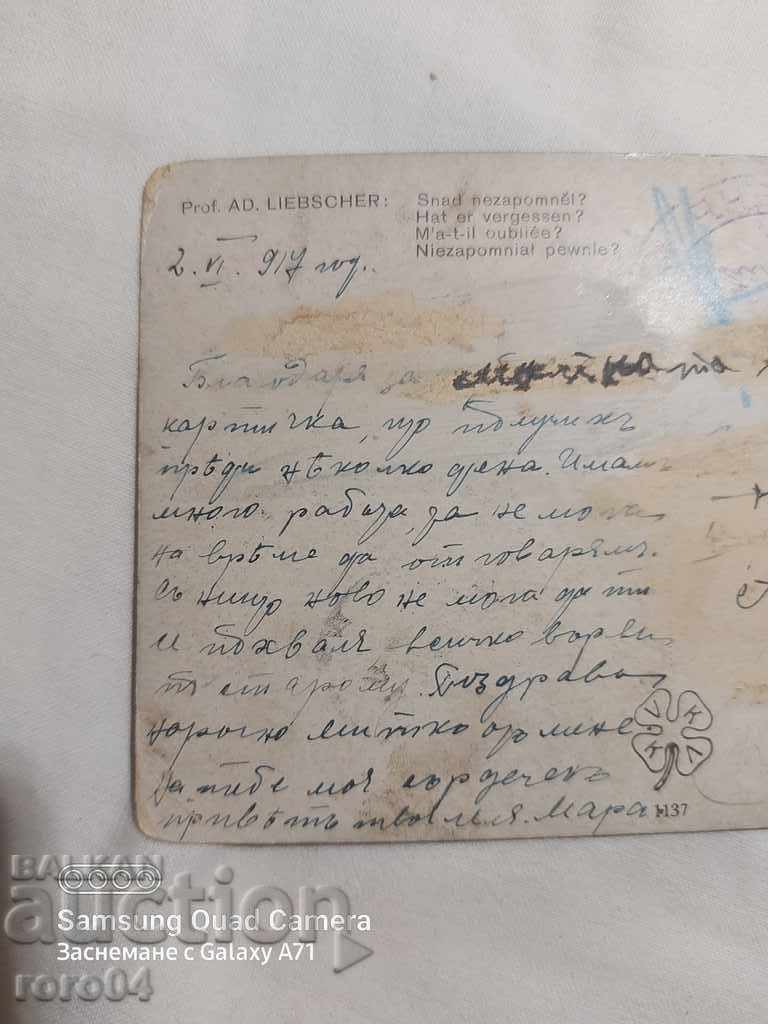 Prof. AD. LIEBSCHER:
Snad nezapomněl?
Hat er vergessen?
M'a-t-il oubliée?
Niezapomniał pewnie?
2. VI. 917 год.
Благодаря за
картичка, що получихъ
прѣди нѣколко дена. Имамъ
много работа, за не мога
на врѣме да отговарямъ.
Съ нищо ново не мога да ти
и похваля всичко върви
по старому. Поздрави
нарочно Митко отъ мене
за тебе моя сърдеченъ
привѣтъ твоя Мара
1137
BALKAN
auction
roro04
Samsung Quad Camera
Заснемане с Galaxy A71